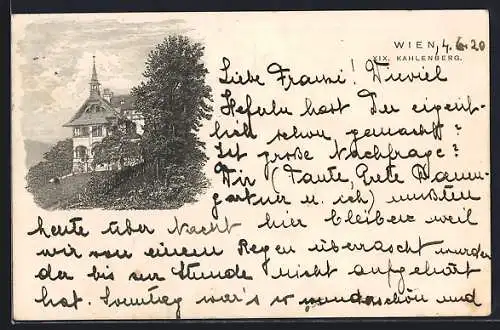 WIEN, 4. 6. 20
XIX. KAHLENBERG.
Liebe Franzi! Wieviel
Hefuln hast Du eigent-
lich schon gemacht?
Ist große Nachfrage?
Wir (Tante, Grete Baum-
gartner u. ich) mußten
heute über Nacht hier bleiben weil
wir von einem Regen überrascht wurden
der bis zur Stunde nicht aufgehört
hat. Sonntag war's so wunderschön und